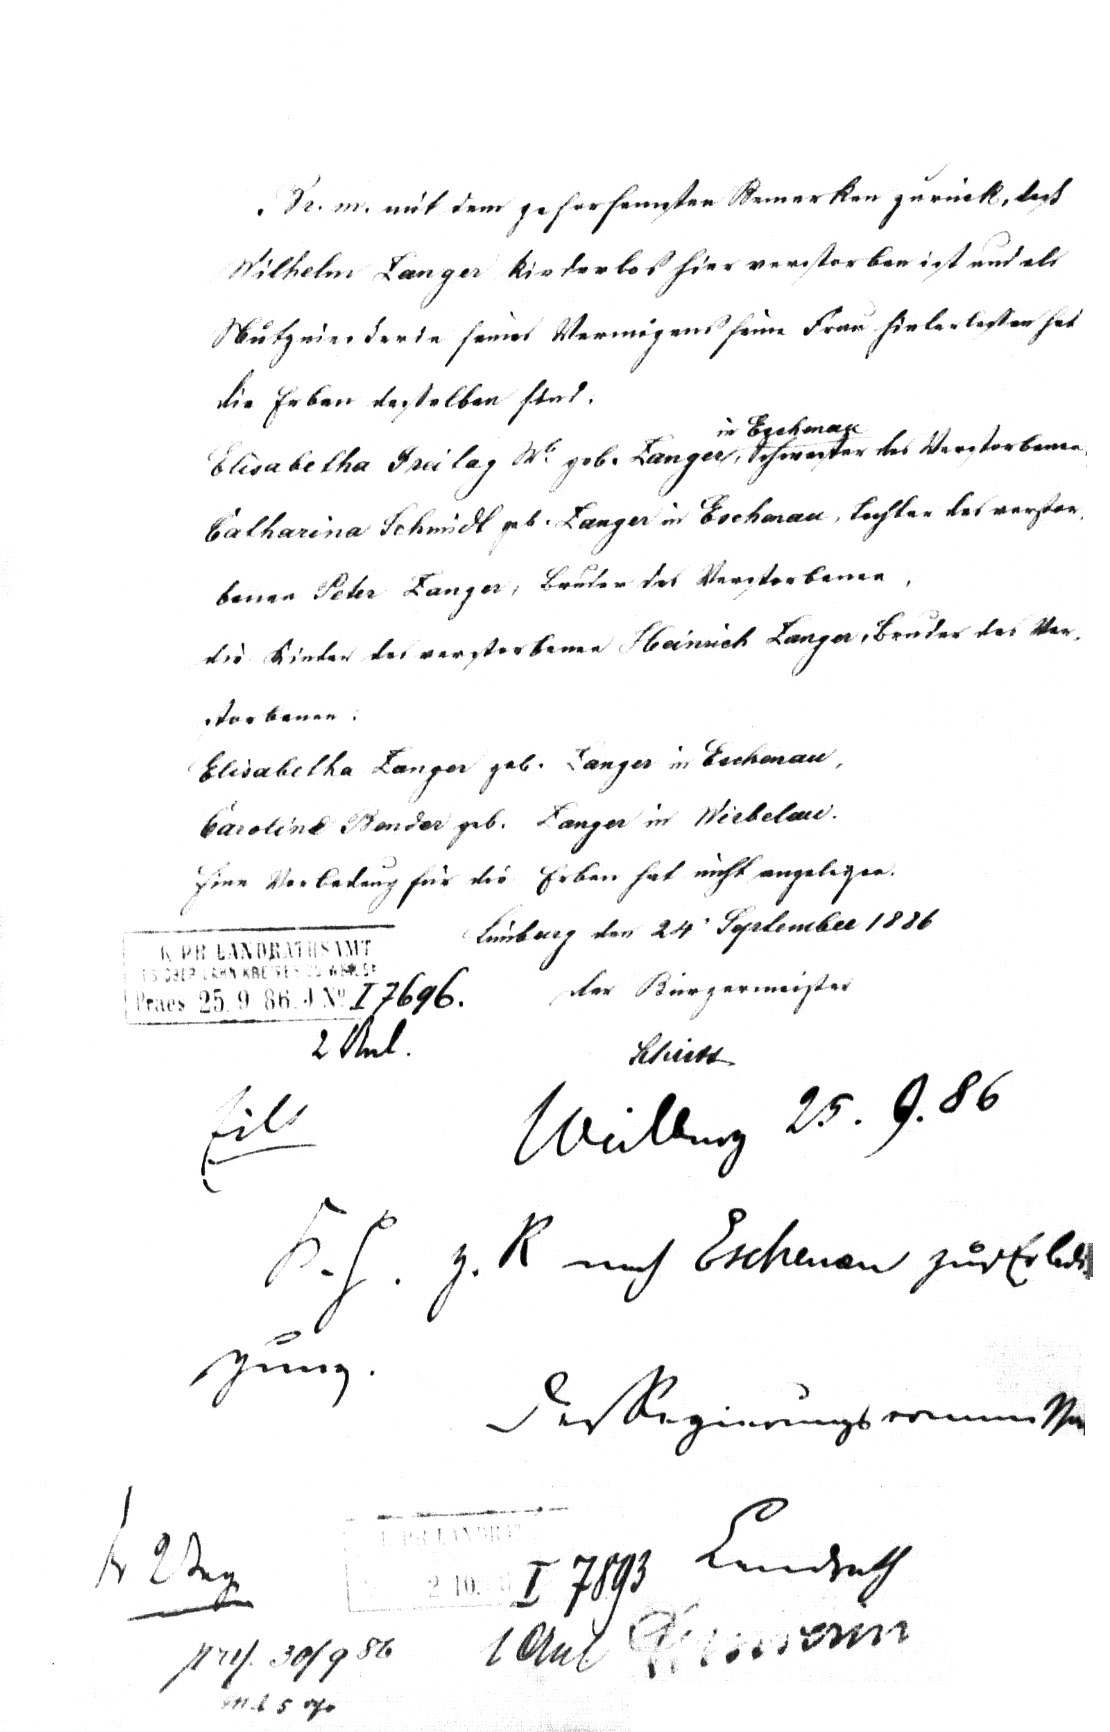 Br. m. mit dem gehorsamsten Bemerken zurück, daß
Wilhelm Zanger kinderlos hier verstorben ist und als
Nutznießerin seines Vermögens seine Frau hinterlassen hat
die Erben desselben sind.
in Eschenau
Elisabetha Freitag We geb. Zanger, Schwester des Verstorbenen,
Catharina Schmidt geb. Zanger in Eschenau, Tochter des verstor-
benen Peter Zanger, Bruder des Verstorbenen,
die Kinder des verstorbenen Heinrich Zanger, Bruder des Ver-
storbenen:
Elisabetha Zanger geb. Zanger in Eschenau,
Caroline Bender geb. Zanger in Wirbelau.
Eine Vorladung für die Erben hat nicht angelegen.
Limburg den 24. September 1886
K. PR. LANDRATHSAMT
Praes 25. 9. 86. J No I 7696.
Der Bürgermeister
2 Anl.
Eilt
Weilburg 25. 9. 86
z. R nach Eschenau zur Erledi
gung.
Der Regierungscommissar
K. PR. LANDRAT
2. 10. I 7893
Landrath
1 Anl
30/9 86